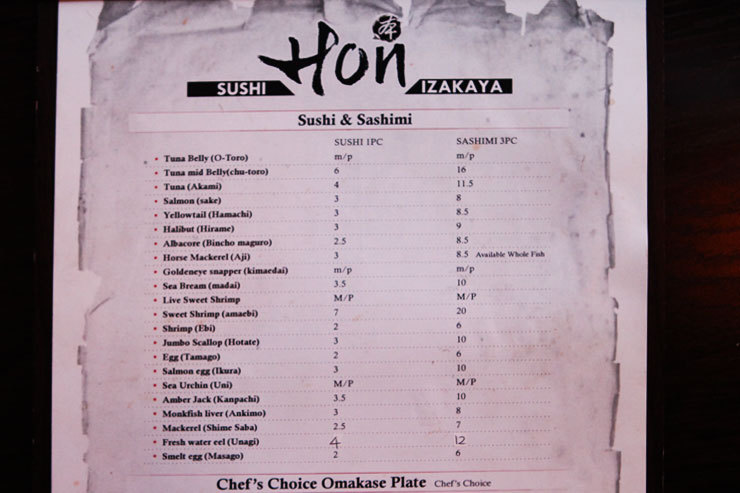 Hon
SUSHI IZAKAYA
Sushi & Sashimi
SUSHI 1PC SASHIMI 3PC
Tuna Belly (O-Toro) m/p m/p
Tuna mid Belly(chu-toro) 6 16
Tuna (Akami) 4 11.5
Salmon (sake) 3 8
Yellowtail (Hamachi) 3 8.5
Halibut (Hirame) 3 9
Albacore (Bincho maguro) 2.5 8.5
Horse Mackerel (Aji) 3 8.5 Available Whole Fish
Goldeneye snapper (kimaedai) m/p m/p
Sea Bream (madai) 3.5 10
Live Sweet Shrimp M/P M/P
Sweet Shrimp (amaebi) 7 20
Shrimp (Ebi) 2 6
Jumbo Scallop (Hotate) 3 10
Egg (Tamago) 2 6
Salmon egg (Ikura) 3 10
Sea Urchin (Uni) M/P M/P
Amber Jack (Kanpachi) 3.5 10
Monkfish liver (Ankimo) 3 8
Mackerel (Shime Saba) 2.5 7
Fresh water eel (Unagi) 4 12
Smelt egg (Masago) 2 6
Chef's Choice Omakase Plate Chef's Choice